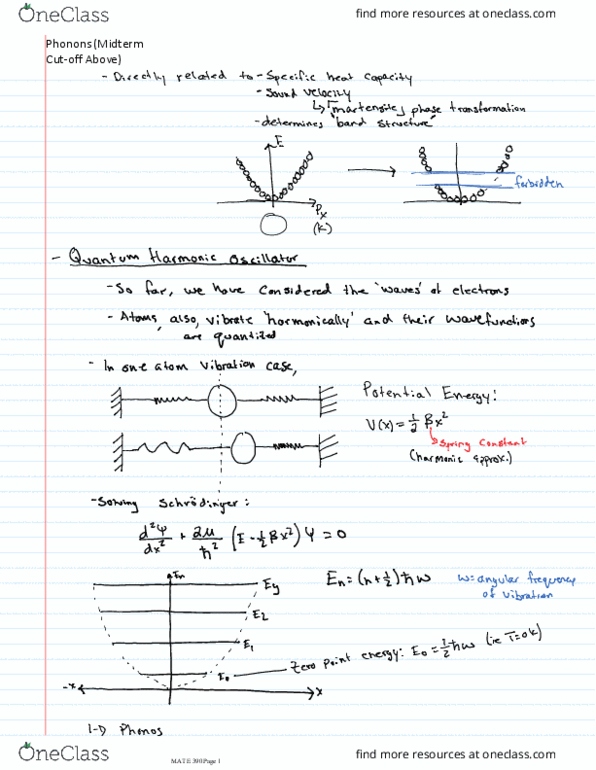 OneClass
find more resources at oneclass.com
Phonons (Midterm
Cut-off Above)
- Directly related to - Specific heat capacity
- Sound velocity
↳ [martensite] phase transformation
- determines "band structure"
E
Px
(k)
forbidden
- Quantum Harmonic Oscillator
- So far, we have considered the 'waves' of electrons
- Atoms, also, vibrate 'harmonically' and their wavefunctions
are quantized
- In one atom vibration case,
Potential Energy:
V(x) = 1/2 βx²
↳ Spring Constant
(harmonic approx.)
- Solving Schrödinger:
d²ψ/dx² + 2μ/ħ² (E - 1/2 βx²) ψ = 0
En = (n + 1/2) ħω
ω = angular frequency
of vibration
En
E2
E1
E0
Zero point energy: E0 = 1/2 ħω (ie T=0K)
-x
x
1-D Phonos
OneClass
MATE 390 Page 1
find more resources at oneclass.com